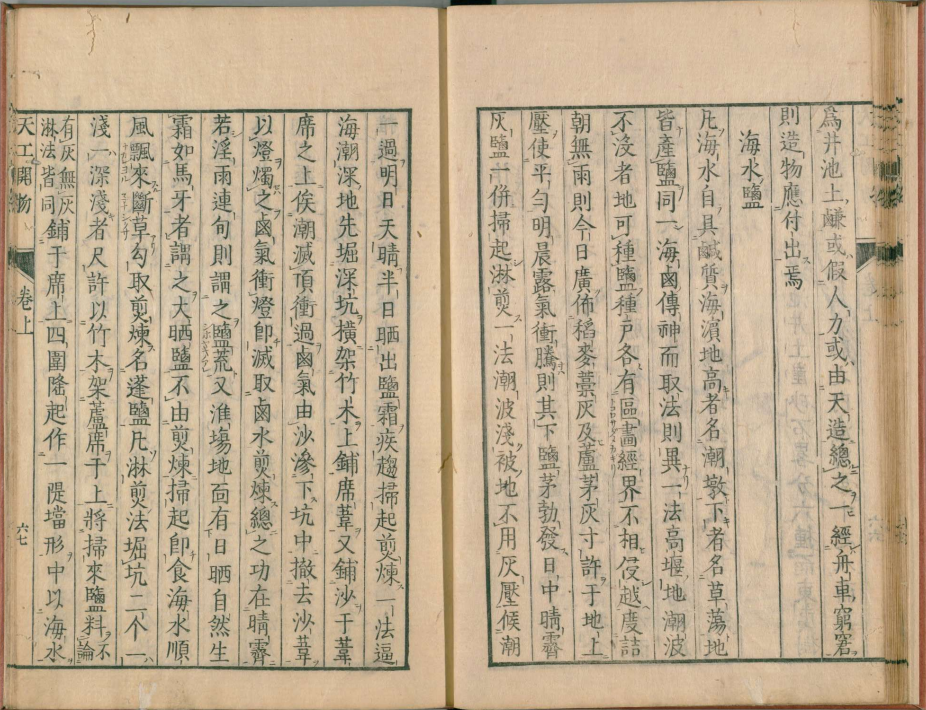 爲井池土鹻或假人力或由天造總之一經舟車窮窘
則造物應付出焉
海水鹽
凡海水自具鹹質海濵地高者名潮墩下者名草蕩地
皆產鹽同一海鹵傳神而取法則異一法高堰地潮波
不没者地可種鹽種戸各有區畫經界不相侵越度詰
朝無雨則今日廣佈稻麥藁灰及蘆茅灰寸許于地上
壓使平勻明晨露氣衝騰則其下鹽茅勃發日中晴霽
灰鹽一併掃起淋煎一法潮波淺被地不用灰壓候潮
一過明日天晴半日晒出鹽霜疾趨掃起煎煉一法逼
海潮深地先堀深坑横架竹木上鋪席葦又鋪沙于葦
席之上俟潮滅頂衝過鹵氣由沙滲下坑中撤去沙葦
以燈燭之鹵氣衝燈卽滅取鹵水煎煉總之功在晴霽
若淫雨連旬則謂之鹽荒又淮塲地靣有日晒自然生
霜如馬牙者謂之大晒鹽不由煎煉掃起卽食海水順
風飄來斷草勾取煎煉名蓬鹽凡淋煎法堀坑二个一
淺一深淺者尺許以竹木架蘆席于上將掃來鹽料不論
有灰無灰
淋法皆同鋪于席上四圍隆起作一隄壋形中以海水
天工開物 卷上 六七